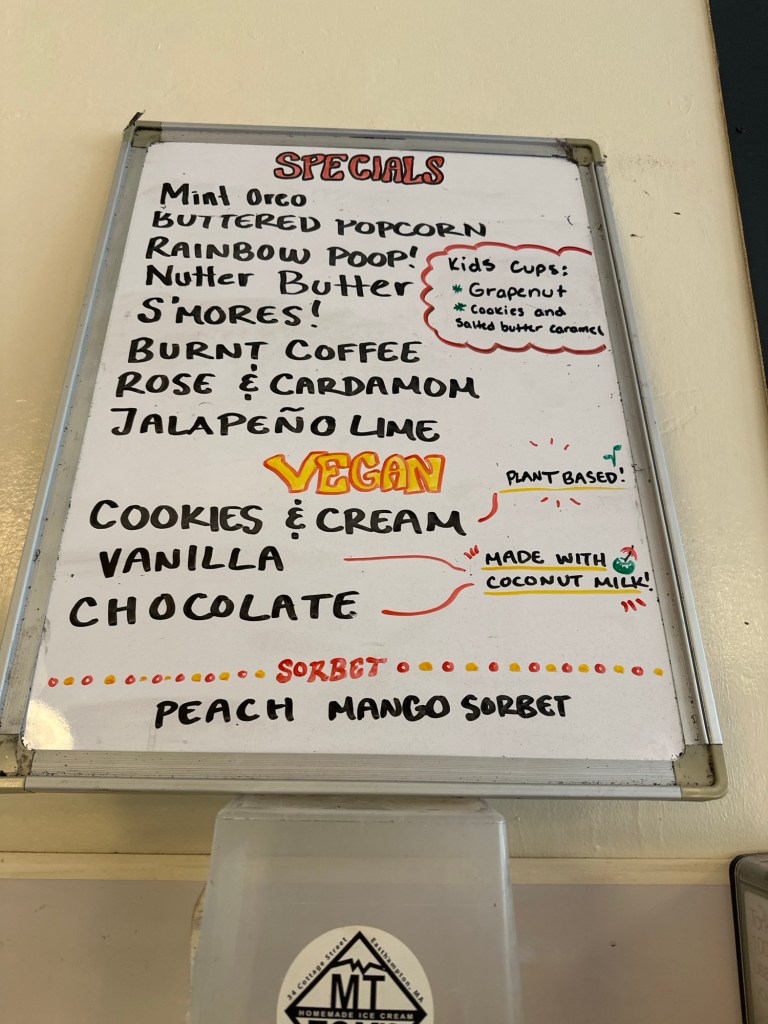 SPECIALS
Mint Oreo
BUTTERED POPCORN
RAINBOW POOP!
Nutter Butter
S'MORES!
BURNT COFFEE
ROSE & CARDAMOM
JALAPEÑO LIME
Kids Cups:
* Grapenut
* Cookies and
Salted butter caramel
VEGAN
COOKIES & CREAM
PLANT BASED!
VANILLA
CHOCOLATE
MADE WITH
COCONUT MILK!
SORBET
PEACH MANGO SORBET
34 Cottage Street
Easthampton, MA
MT
HOMEMADE ICE CREAM